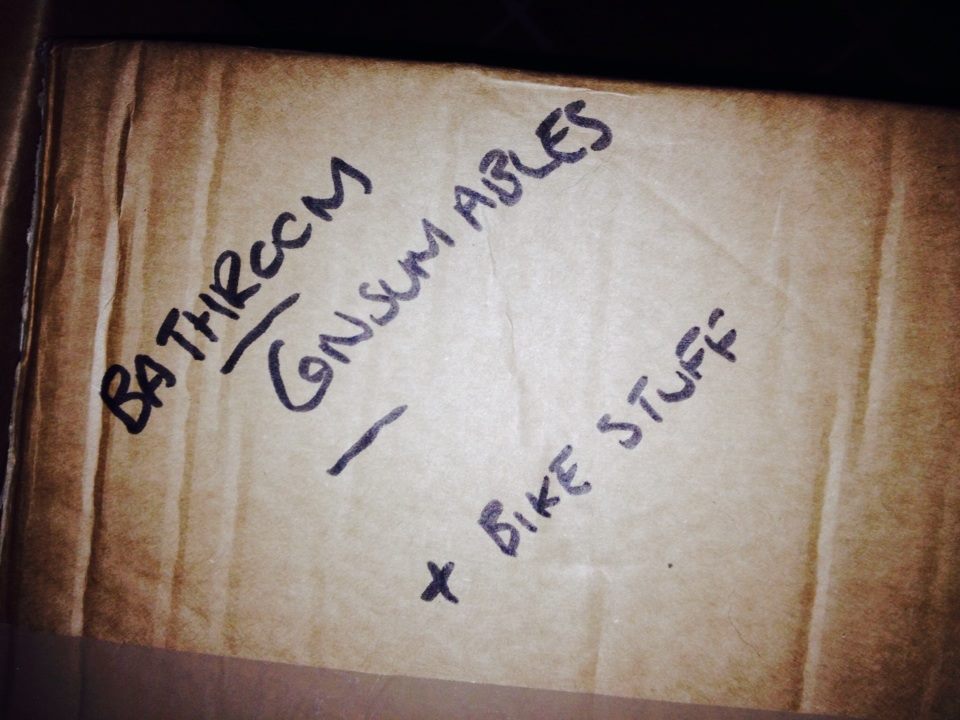 BATHROOM
- CONSUMABLES
-
x BIKE STUFF